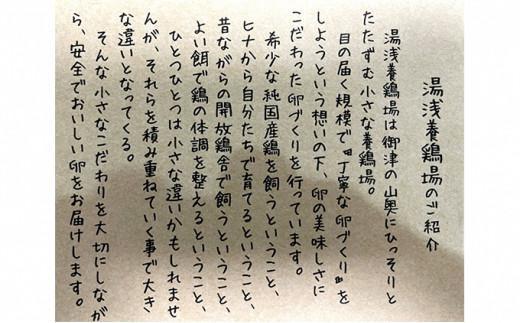 湯浅養鶏場のご紹介
湯浅養鶏場は御津の山奥にひっそりと
たたずむ小さな養鶏場。
目の届く規模で『丁寧な卵づくり』を
しようという想いの下、卵の美味しさに
こだわった卵づくりを行っています。
希少な純国産鶏を飼うということ、
ヒナから自分たちで育てるということ、
昔ながらの開放鶏舎で飼うということ、
よい餌で鶏の体調を整えるということ、
ひとつひとつは小さな違いかもしれませ
んが、それらを積み重ねていく事で大き
な違いとなってくる。
そんな小さなこだわりを大切にしなが
ら、安全でおいしい卵をお届けします。